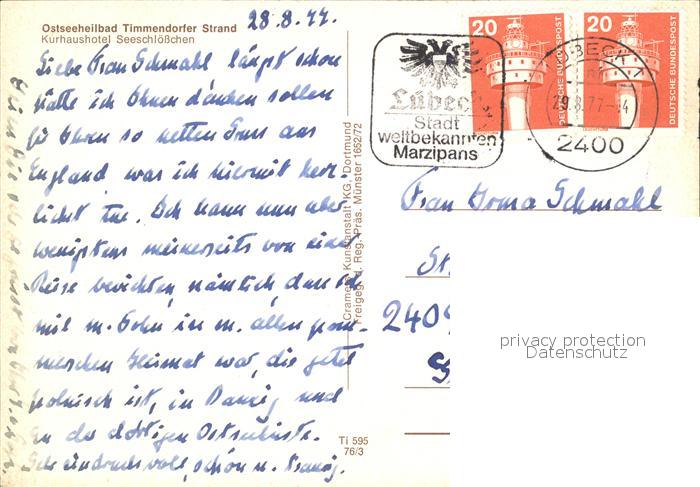 Ostseeheilbad Timmendorfer Strand
Kurhaushotel Seeschlößchen
28.8.77.
Liebe Frau Schmahl längst schon
hätte ich Ihnen danken sollen
für Ihren so netten Gruss aus
England was ich hiermit herz-
lichst tue. Ich kann nun aber
wenigstens meinerseits von einer
Reise berichten, nämlich, dass ich
mit m. Sohn in m. alten pom-
merschen Heimat war, die jetzt
polnisch ist, in Danzig und
an der dortigen Ostseeküste.
Sehr eindrucksvoll, schön u. traurig.
Cramers Kunstanstalt KG, Dortmund
Freigeg. d. Reg. Präs. Münster 1652/72
Ti 595
76/3
Lübeck
Stadt
weltbekannten
Marzipans
20
DEUTSCHE BUNDESPOST
20
DEUTSCHE BUNDESPOST
LÜBECK 1
29.8.77-14
2400
Frau Irma Schmahl
St
240
privacy protection
Datenschutz